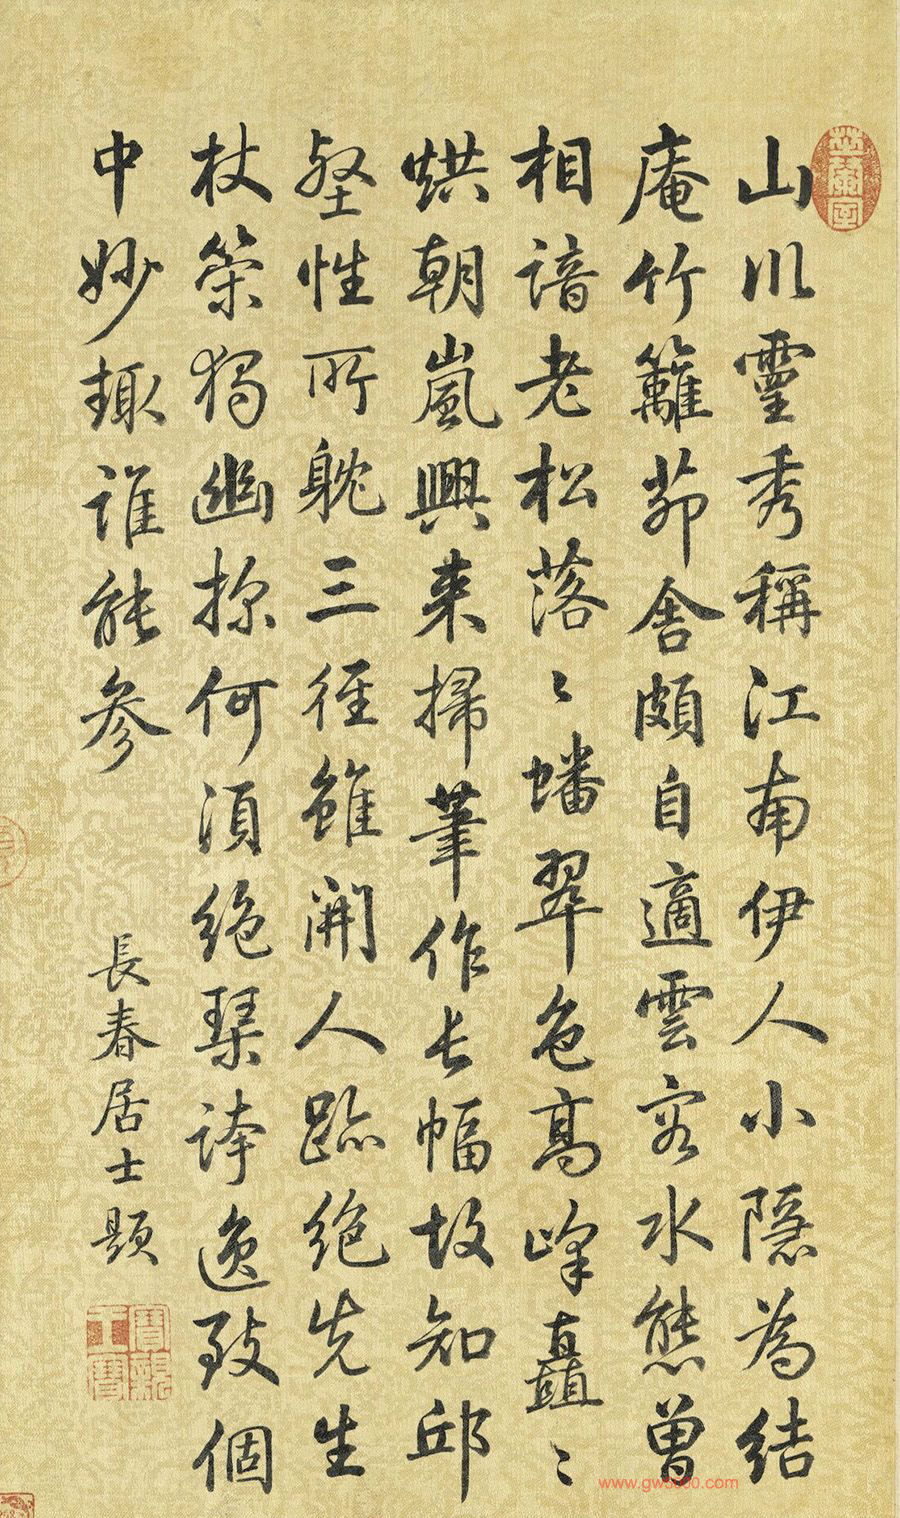 芝蘭室
山川靈秀稱江南伊人小隱為結
庵竹籬茆舍頗自適雲容水態曾
相諳老松落〻蟠翠色高峰矗〻
烘朝嵐興來掃筆作長幅故知邱
壑性所躭三徑雖開人跡絕先生
杖策獨幽探何須絕琹誇逸致個
中妙趣誰能參
長春居士題
寶親王寶